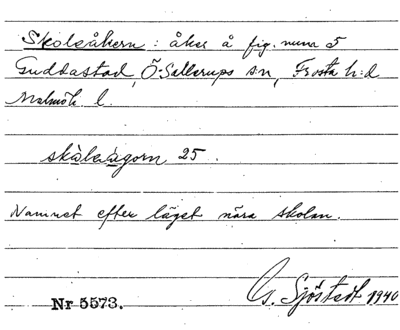 Skoleåkern: åker å fig. nuna 5
Guddastad, Ö:Sallerups sn, Frosta h:d
Malmöh. l.
skåleågorn 25.
Namnet efter läget nära skolan.
G. Sjöstedt 1940
Nr 5573.